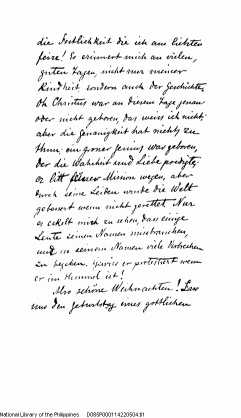 die Festlichkeit die ich am liebsten
feire! Er erinnert mich an vielen,
guten Tagen, nicht nur meiner
Kindheit sondern auch der Geschichte,
Ob Christus war an diesem Tage genau
oder nicht geboren, das weiss ich nicht;
aber die Genauigkeit hat nichts zu
thun; ein groser Jenius war geboren,
der die Wahrheit und Liebe predigte
er litt seiner Mission wegen, aber
durch seine Leiden wurde die Welt
gebessert wenn nicht gerettet. Nur
es ekelt mich zu sehen, dass einige
Leute seinen Namen misbrauchen,
und in seinem Namen viele Verbrechen
zu begehen. Gewiss er protestiert wenn
er im Himmel ist!
Also schöne Weihnachten! Lass
uns den Geburtstag eines göttlichen
National Library of the Philippines